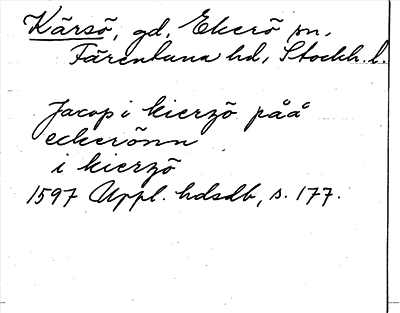 Kärsö, gd, Ekerö sn,
Färentuna hd, Stockh. l.
Jacop i kierzö påå
eckerönn
i kierzö
1597 Uppl. hdsdb, s. 177.